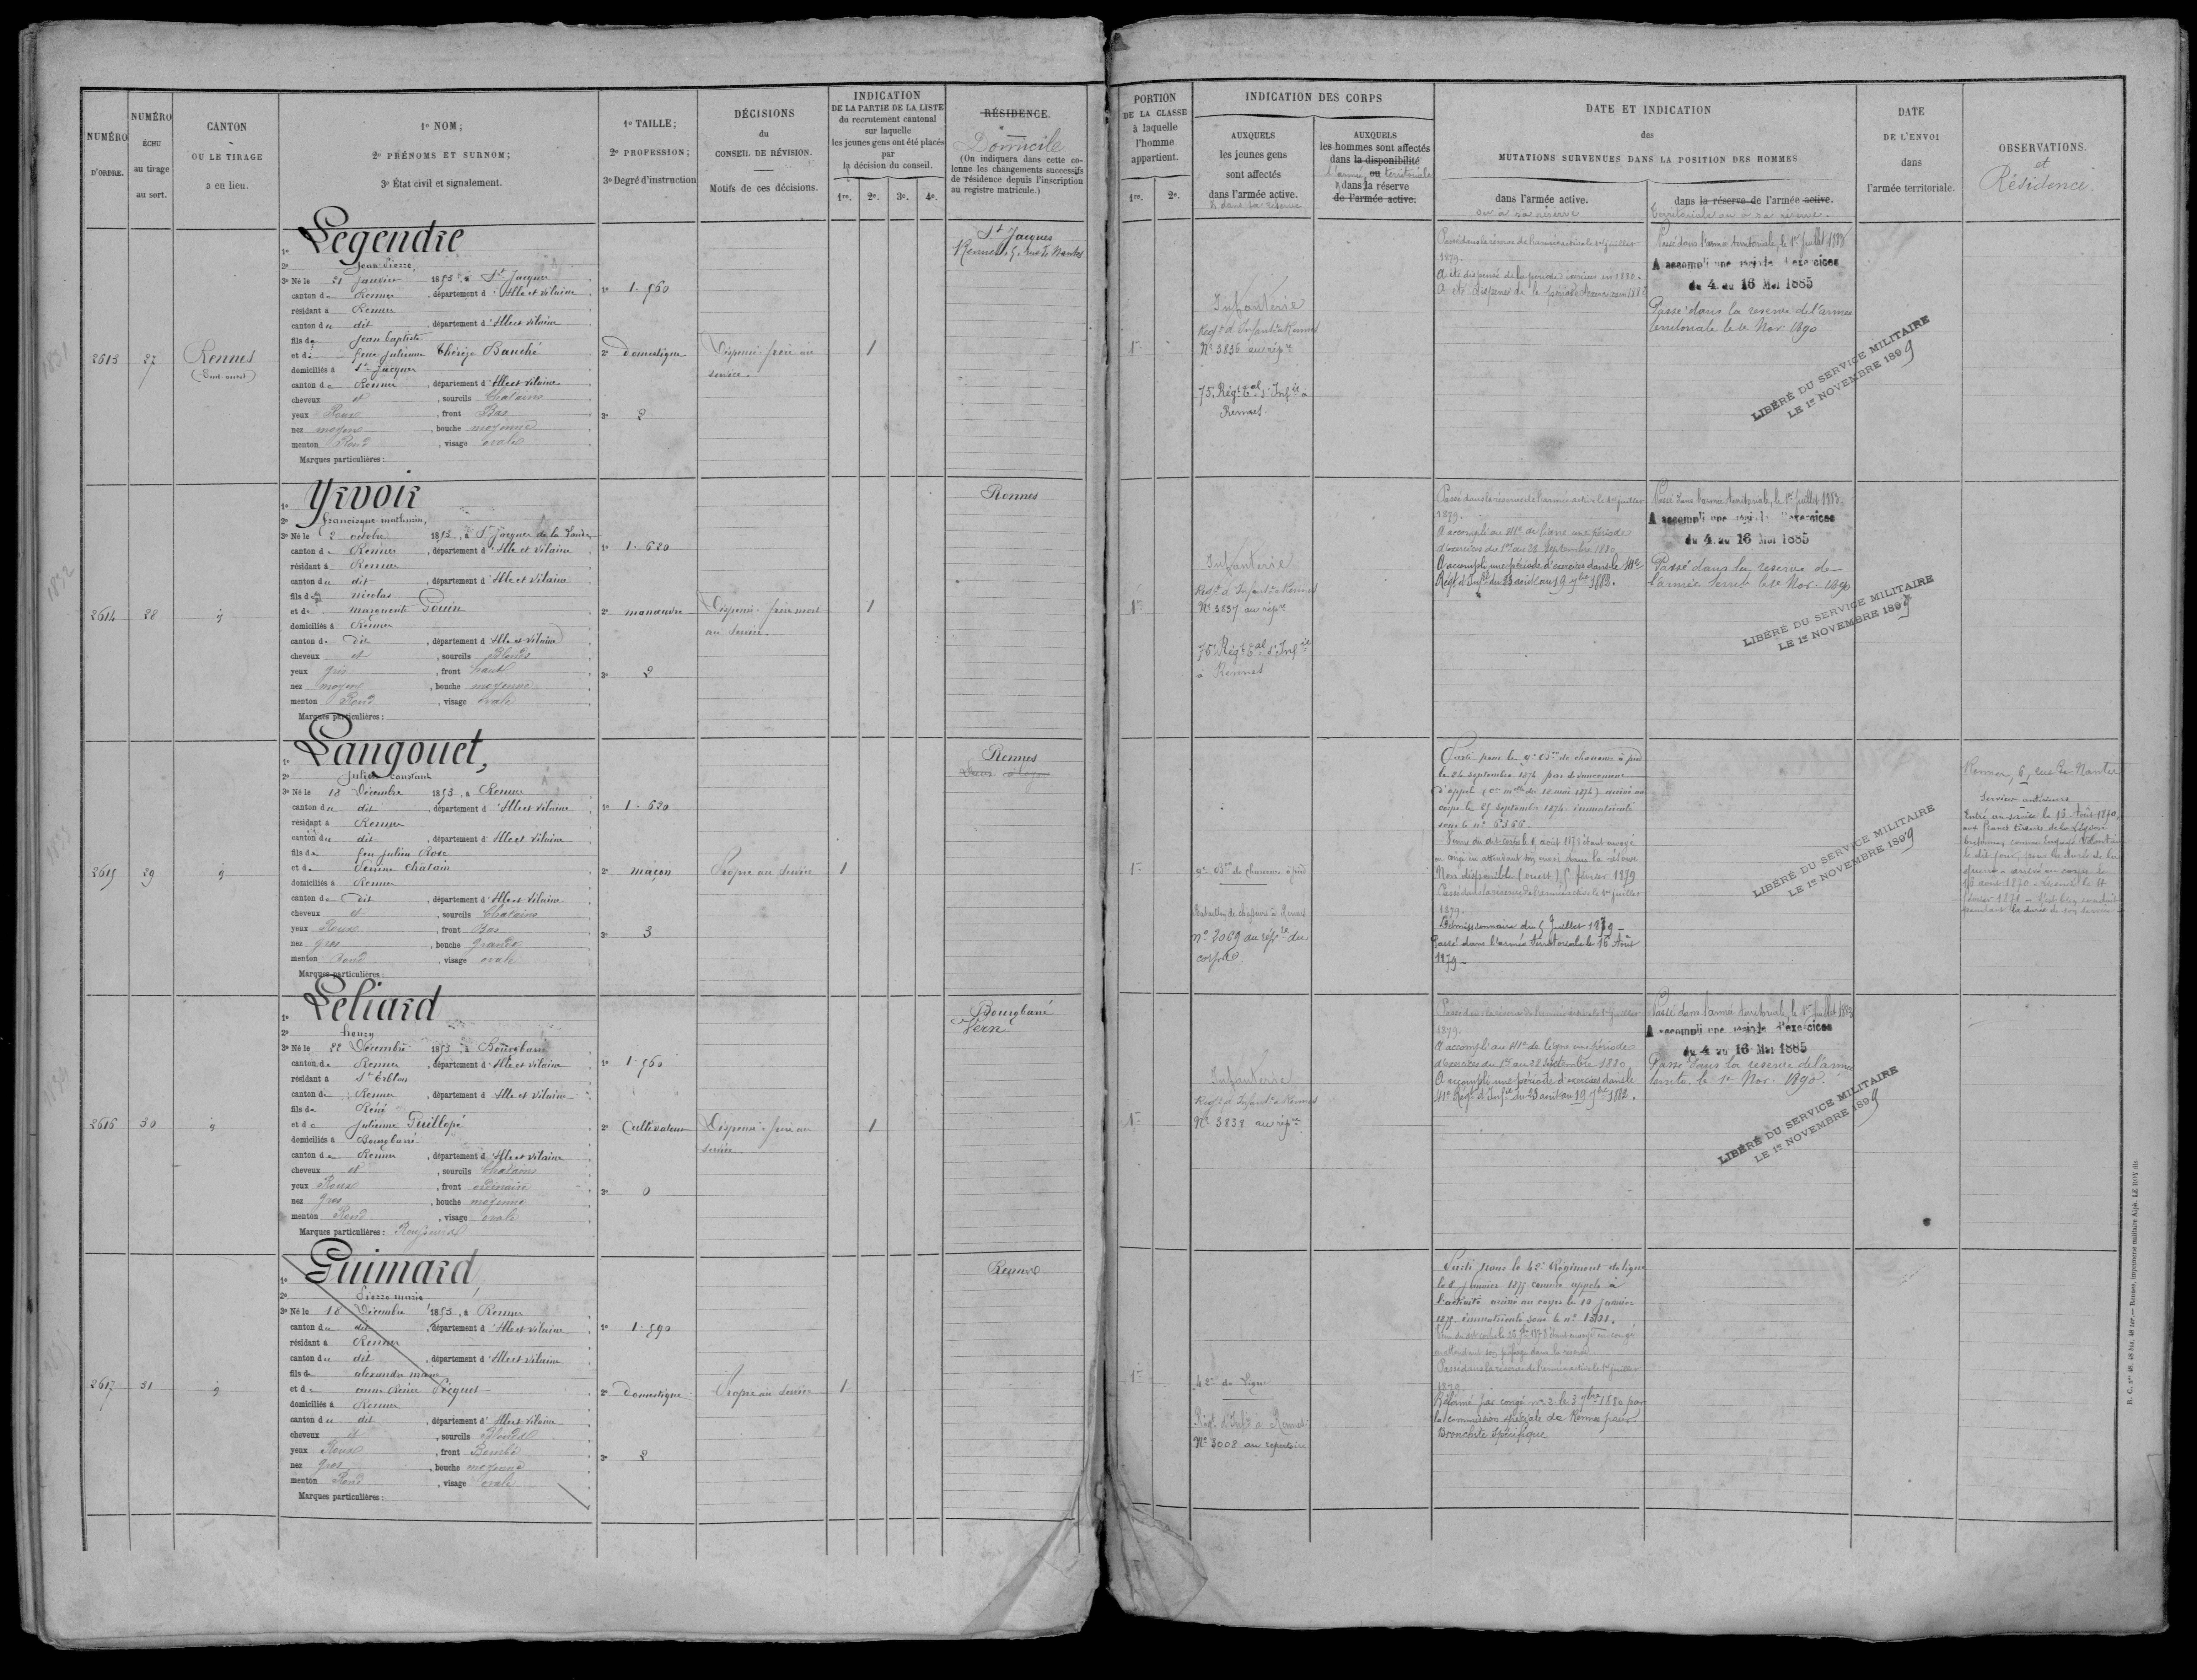 NUMÉRO
D'ORDRE.
NUMÉRO
ÉCHU
au tirage
au sort.
CANTON
OU LE TIRAGE
a eu lieu.
1º NOM;
2º PRÉNOMS ET SURNOM;
3º État civil et signalement.
1º TAILLE;
2º PROFESSION;
3º Degré d'instruction
DÉCISIONS
du
CONSEIL DE RÉVISION.
Motifs de ces décisions.
INDICATION
DE LA PARTIE DE LA LISTE
du recrutement cantonal
sur laquelle
les jeunes gens ont été placés
par
la décision du conseil.
1re. 2e. 3e. 4e.
RÉSIDENCE
Domicile
(On indiquera dans cette co-
lonne les changements successifs
de résidence depuis l'inscription
au registre matricule.)
PORTION
DE LA CLASSE
à laquelle
l'homme
appartient.
1re. 2e.
INDICATION DES CORPS
AUXQUELS
les jeunes gens
sont affectés
dans l'armée active.
& dans sa réserve
AUXQUELS
les hommes sont affectés
dans la disponibilité
l'armée ou territoriale
& dans la réserve
de l'armée active.
DATE ET INDICATION
des
MUTATIONS SURVENUES DANS LA POSITION DES HOMMES
dans l'armée active.
ou à sa réserve
dans la réserve de l'armée active.
territoriale ou à sa réserve.
DATE
DE L'ENVOI
dans
l'armée territoriale.
OBSERVATIONS.
et
Résidence.
2613 27 Rennes
(Sud ouest)
1º Legendre
2º Jean Pierre
3º Né le 21 Janvier 1853, à St Jacques
canton de Rennes, département d'Ille et Vilaine
résidant à Rennes
canton du dit, département d'Ille et Vilaine
fils de Jean baptiste
et de feue Julienne Thérèze Bauché
domiciliés à St Jacques
canton de Rennes, département d'Ille et Vilaine
cheveux et, sourcils Chatains
yeux Roux, front Bas
nez moyen, bouche moyenne
menton Rond, visage ovale
Marques particulières:
1º 1.560
2º domestique
3º 2
Dispensé frère au
service.
1
St Jacques
Rennes, 5, rue de Nantes
1re
Infanterie
Regt d'Infantie Rennes
Nº 3836 au répre
75e Régt tal d'Infie à
Rennes.
Passé dans la réserve de l'armée active le 1er juillet
1879.
A été dispensé de la période d'exercices en 1880.
A été dispensé de la période d'exercices en 1882
Passé dans l'armée territoriale, le 1er Juillet 1883
A accompli une période d'exercices
du 4 au 16 Mai 1885
Passé dans la réserve de l'armée
territoriale le 1er Nov. 1890
LIBÉRÉ DU SERVICE MILITAIRE
LE 1er NOVEMBRE 1899
2614 28 d
1º Yrvoir
2º francisque mathurin,
3º Né le 2 octobre 1853, à St Jacques de la Lande
canton de Rennes, département d'Ille et Vilaine
résidant à Rennes
canton du dit, département d'Ille et Vilaine
fils de nicolas
et de marguerite Gouin
domiciliés à Rennes
canton de dit, département d'Ille et Vilaine
cheveux et, sourcils Blonds
yeux gris, front haut
nez moyen, bouche moyenne
menton Rond, visage ovale
Marques particulières:
1º 1.620
2º manœuvre
3º 2
Dispensé frère mort
au service.
1
Rennes
1re
Infanterie
Regt d'Infantie Rennes
Nº 3837 au répre
75e Régt tal d'Infie
à Rennes
Passé dans la réserve de l'armée active le 1er juillet
1879.
A accompli au 41e de ligne une période
d'exercices du 1er au 28 septembre 1880
A accompli une période d'exercices dans le 41e
Régt d'Infie du 23 août au 19 7bre 1882.
Passé dans l'armée territoriale, le 1er Juillet 1883
A accompli une période d'exercices
du 4 au 16 Mai 1885
Passé dans la réserve de
l'armée territ le 1er Nov. 1890
LIBÉRÉ DU SERVICE MILITAIRE
LE 1er NOVEMBRE 1899
2615 29 d
1º Langouet,
2º Julien constant
3º Né le 18 Décembre 1853, à Rennes
canton du dit, département d'Ille et Vilaine
résidant à Rennes
canton du dit, département d'Ille et Vilaine
fils de feu Julien Rose
et de Perrine Châtain
domiciliés à Rennes
canton de dit, département d'Ille et Vilaine
cheveux et, sourcils Chatains
yeux Roux, front Bas
nez gros, bouche grande
menton Rond, visage ovale
Marques particulières:
1º 1.620
2º maçon
3º 3
Propre au service
1
Rennes
1re
9e Bon de chasseurs à pied
Bataillon de chasseurs à Rennes
nº 2069 au répre du
corps
Parti pour le 9e Bon de chasseurs à pied
le 24 septembre 1874 par devancement
d'appel (cre mlle du 12 mai 1874) arrivé au
corps le 25 septembre 1874. immatriculé
sous le nº 6366.
en congé en attendant son envoi dans la réserve
Non disponible (ouest) 5 février 1879
Passé dans la réserve de l'armée active le 1er juillet
1879.
Démissionnaire du 5 Juillet 1879 –
Passé dans l'armée territoriale le 16 Août
1879 –
LIBÉRÉ DU SERVICE MILITAIRE
LE 1er NOVEMBRE 1899
Rennes, 6, rue de Nantes
Services antérieurs
Entré au service le 15 Août 1870,
aux francs tireurs de la Légion
bretonne, comme engagé volontaire
le dit jour, pour la durée de la
guerre – arrivé au corps le
15 août 1870 – Licencié le 11
février 1871 –
pendant la durée de son service
2616 30 d
1º Leliard
2º henry
3º Né le 22 Décembre 1853, à Bourgbarré
canton de Rennes, département d'Ille et Vilaine
résidant à St Erblon
canton de Rennes, département d'Ille et Vilaine
fils de Réné
et de Julienne Guillopé
domiciliés à Bourgbarré
canton de Rennes, département d'Ille et Vilaine
cheveux et, sourcils Chatains
yeux Roux, front ordinaire
nez gros, bouche moyenne
menton Rond, visage ovale
Marques particulières:
1º 1.560
2º Cultivateur
3º 0
Dispensé frère au
service
1
Bourgbarré
Vern
1re
Infanterie
Regt d'Infantie Rennes
Nº 3838 au répre
Passé dans la réserve de l'armée active le 1er juillet
1879.
A accompli au 41e de ligne une période
d'exercices du 1er au 28 septembre 1880
A accompli une période d'exercices dans le
41e Régt d'Infie du 23 août au 19 7bre 1882.
Passé dans l'armée territoriale, le 1er Juillet 1883
A accompli une période d'exercices
du 4 au 16 Mai 1885
Passé dans la réserve de l'armée
territo. le 1er Nov. 1890.
LIBÉRÉ DU SERVICE MILITAIRE
LE 1er NOVEMBRE 1899
2617 31 d
1º Guimard
2º Pierre marie
3º Né le 18 Décembre 1853, à Rennes
canton du dit, département d'Ille et Vilaine
résidant à Rennes
canton du dit, département d'Ille et Vilaine
fils de alexandre marie
et de anne Reine Pecquet
domiciliés à Rennes
canton du dit, département d'Ille et Vilaine
cheveux et, sourcils Blonds
yeux Roux, front Bombé
nez gros, bouche moyenne
menton Rond, visage ovale
Marques particulières:
1º 1.590
2º domestique
3º 2
Propre au service
1
Rennes
1re
42e de Ligne
Régt d'Infie à Rennes
Nº 3008 au répertoire
Parti pour le 42e Régiment de ligne
le 8 Janvier 1875 comme appelé à
l'activité arrivé au corps le 10 janvier
1875 immatriculé sous le nº
en attendant son passage dans la réserve
Passé dans la réserve de l'armée active le 1er juillet
1879.
Réformé par congé nº 2 le 3 7bre 1880 par
la commission spéciale de Rennes pour
Bronchite spécifique
R. C. nos 48, 48 bis, 48 ter. — Rennes, imprimerie militaire Alph. LE ROY fils